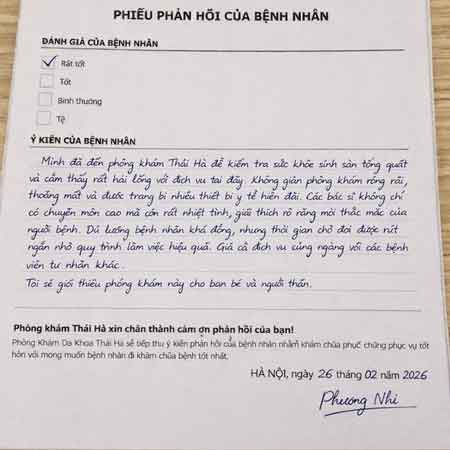 PHIẾU PHẢN HỒI CỦA BỆNH NHÂN
ĐÁNH GIÁ CỦA BỆNH NHÂN
Rất tốt
Tốt
Bình thường
Tệ
Ý KIẾN CỦA BỆNH NHÂN
Mình đã đến phòng khám Thái Hà để kiểm tra sức khỏe sinh sản tổng quát
và cảm thấy rất hài lòng với dịch vụ tại đây. Không gian phòng khám rộng rãi,
thoáng mát và được trang bị nhiều thiết bị y tế hiện đại. Các bác sĩ không chỉ
có chuyên môn cao mà còn rất nhiệt tình, giải thích rõ ràng mọi thắc mắc của
người bệnh. Dù lượng bệnh nhân khá đông, nhưng thời gian chờ đợi được rút
ngắn nhờ quy trình làm việc hiệu quả. Giá cả dịch vụ cũng ngang với các bệnh
viện tư nhân khác.
Tôi sẽ giới thiệu phòng khám này cho bạn bè và người thân.
Phòng khám Thái Hà xin chân thành cảm ơn phản hồi của bạn!
Phòng Khám Đa Khoa Thái Hà sẽ tiếp thu ý kiến phản hồi của bệnh nhân nhằm khám chữa phục chứng phục vụ tốt
hơn với mong muốn bệnh nhân đi khám chữa bệnh tốt nhất.
HÀ NỘI, ngày 26 tháng 02 năm 2026
Phương Nhi